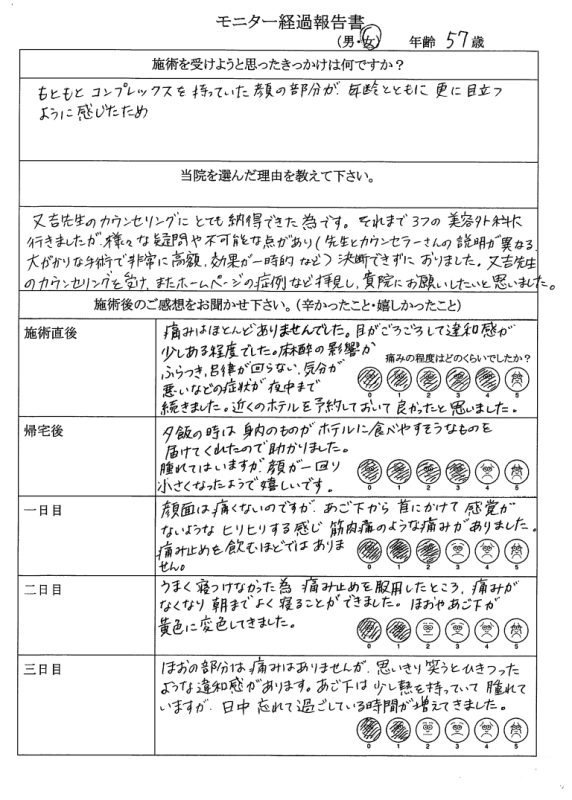 モニター経過報告書
(男・女) 年齢 57歳
施術を受けようと思ったきっかけは何ですか?
もともと コンプレックスを 持っていた 顔の部分が、年齢とともに 更に目立つ
ように 感じたため
当院を選んだ理由を教えて下さい。
又吉先生のカウンセリングに とても納得できた 為です。それまで 3つの 美容外科に
行きましたが、様々な疑問や不可能な点があり(先生とカウンセラーさんの 説明が異なる、
大がかりな手術で非常に高額、効果が一時的など) 決断できずに おりました。又吉先生
のカウンセリングを受け、またホームページの症例など拝見し、貴院にお願いしたいと思いました。
施術後のご感想をお聞かせ下さい。(辛かったこと・嬉しかったこと)
施術直後
痛みはほとんどありませんでした。目がごろごろして違和感が
少しある程度でした。麻酔の影響か
痛みの程度はどのくらいでしたか?
ふらつき、呂律が回らない、気分が
悪いなどの症状が 夜中まで
0 1 2 3 4 5
続きました。近くのホテルを予約しておいて 良かったと思いました。
帰宅後
夕飯の時は 身内のものが ホテルに食べやすそうなものを
届けてくれたので助かりました。
腫れてはいますが、顔が一回り
小さくなったようで嬉しいです。
0 1 2 3 4 5
一日目
顔面は痛くないのですが、あご下から 首にかけて 感覚が
ないような ヒリヒリする感じ 筋肉痛のような痛みがありました。
痛み止めを飲むほどではありま
せん。
0 1 2 3 4 5
二日目
うまく寝つけなかった為 痛み止めを服用したところ、痛みが
なくなり 朝までよく寝ることができました。ほおやあご下が
黄色に変色してきました。
0 1 2 3 4 5
三日目
ほおの部分は 痛みはありませんが、思いきり笑うとひきつった
ような違和感があります。あご下は 少し熱を持っていて 腫れて
いますが、日中 忘れて過ごしている時間が増えてきました。
0 1 2 3 4 5